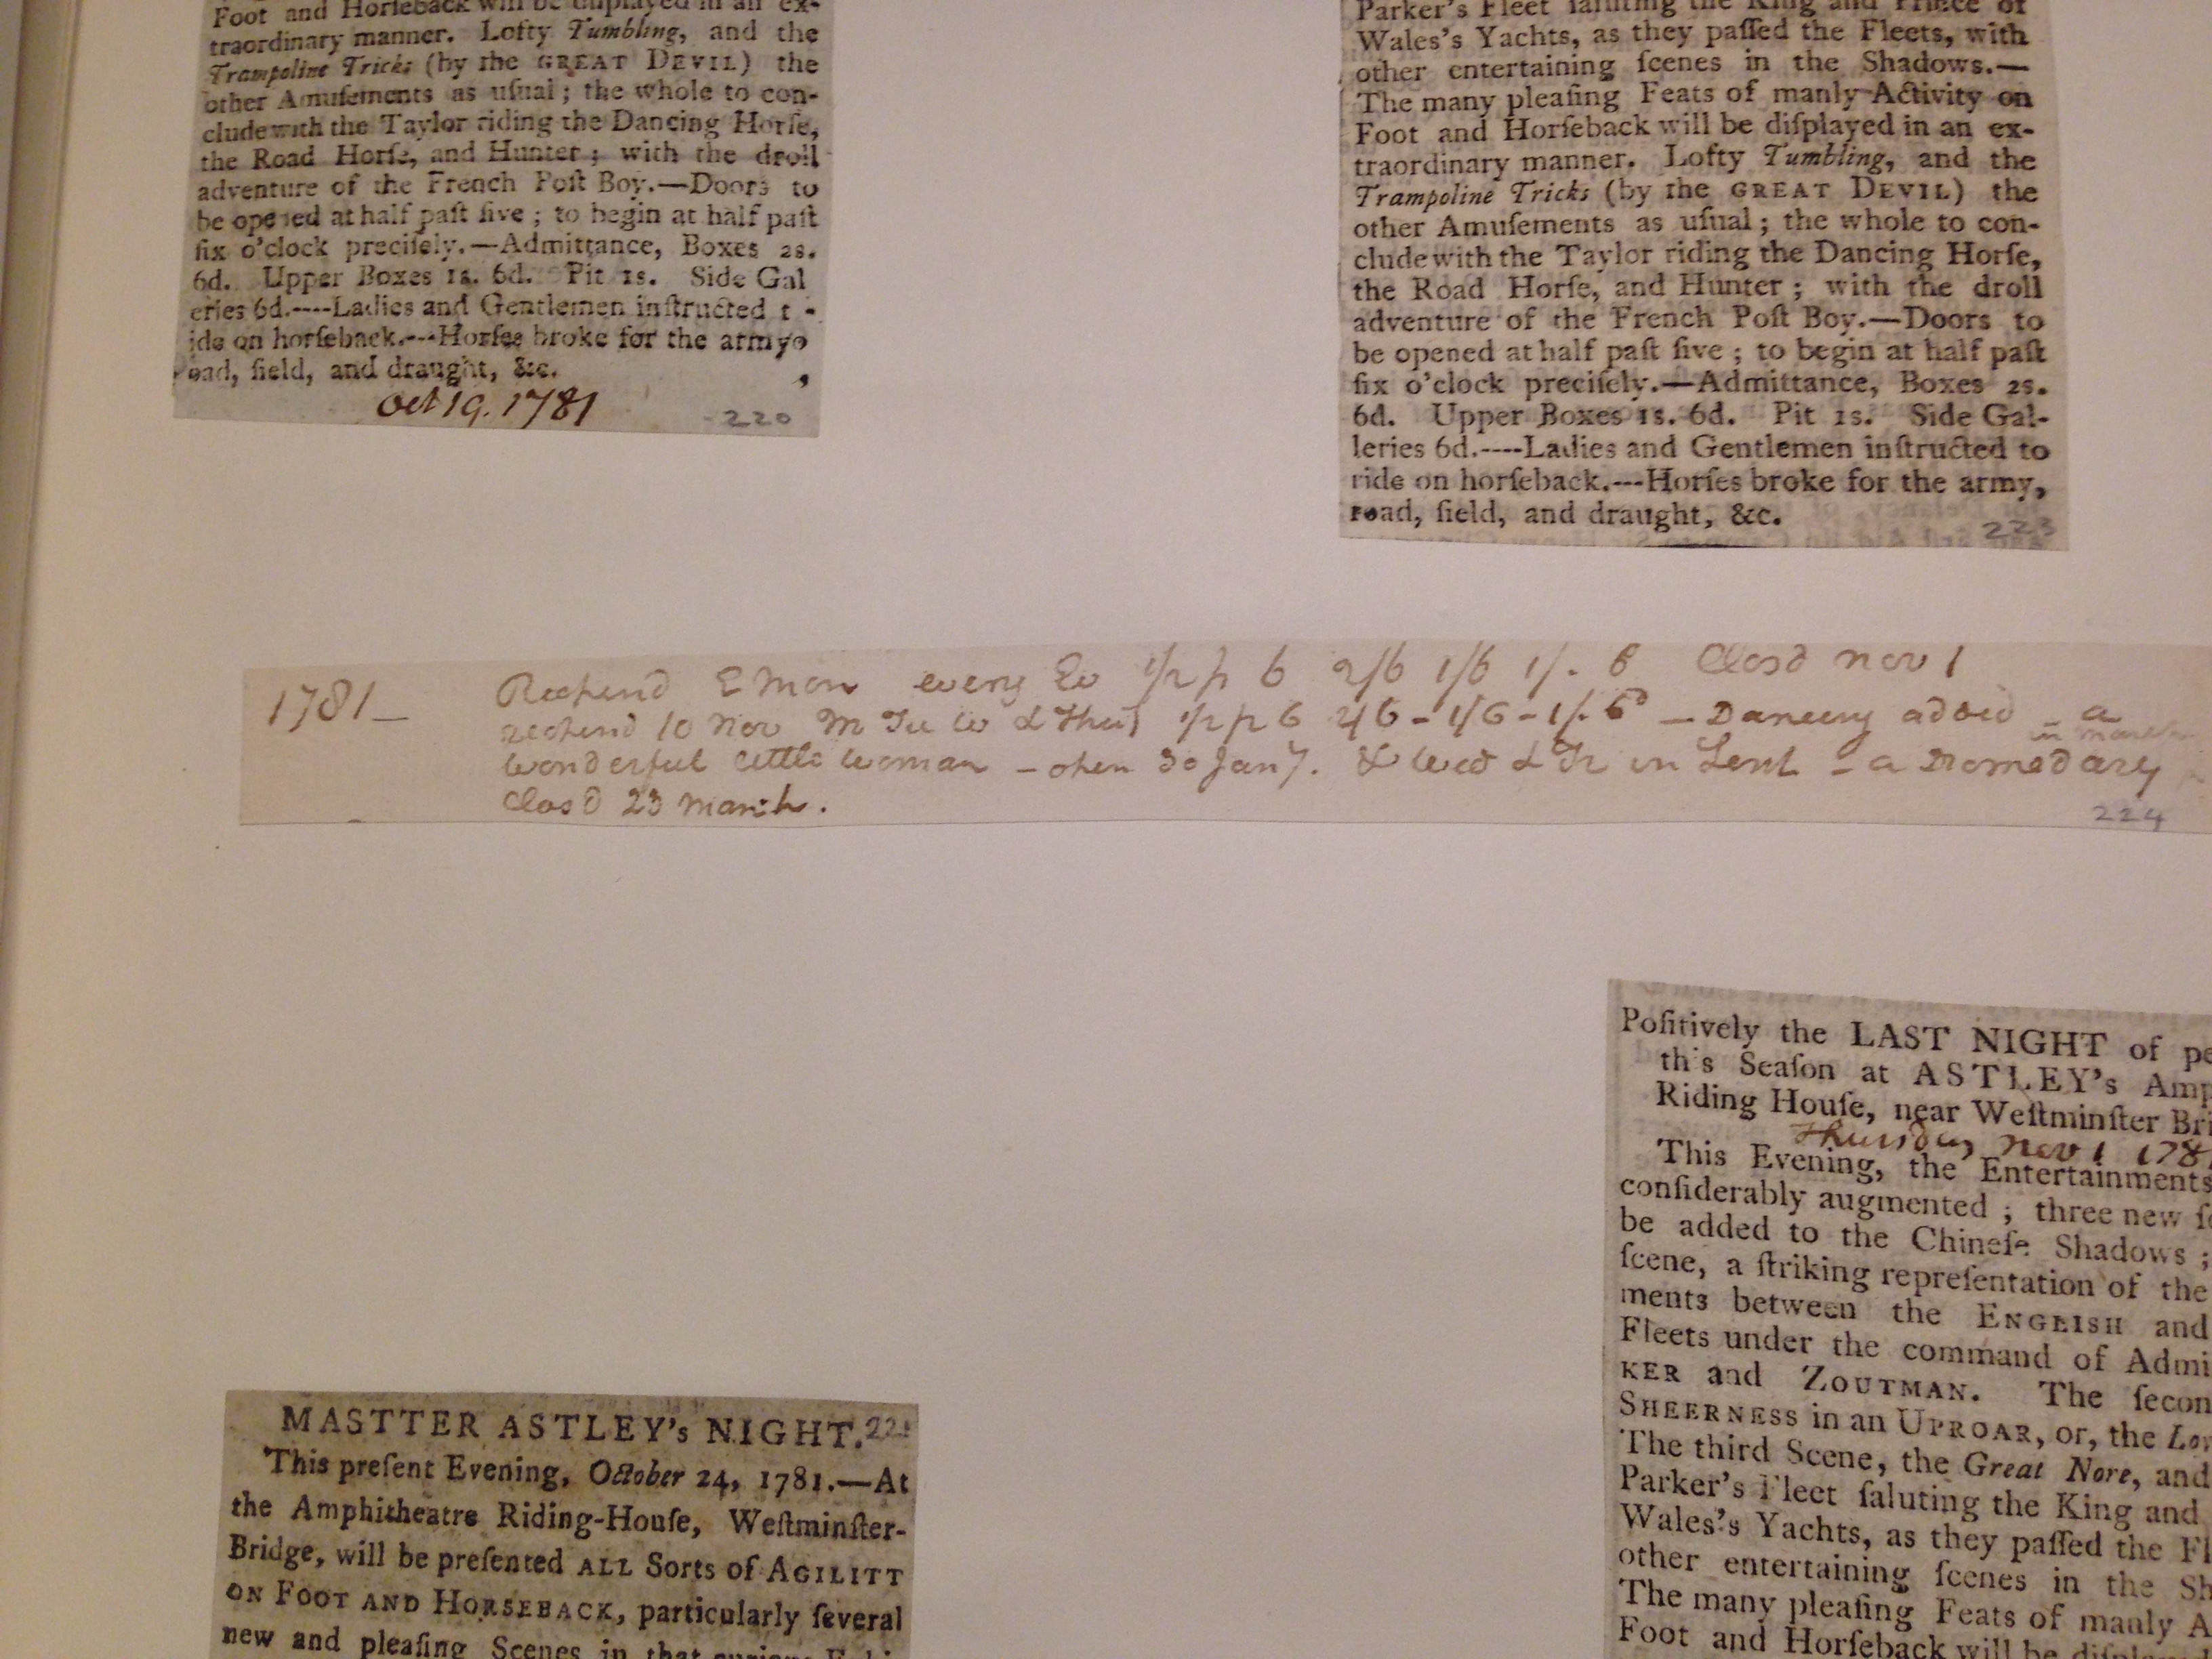 Foot and Horſeback will be diſplayed in an ex-
traordinary manner. Lofty Tumbling, and the
Trampoline Tricks (by the GREAT DEVIL) the
other Amuſements as uſual; the whole to con-
clude with the Taylor riding the Dancing Horſe,
the Road Horſe, and Hunter; with the droll
adventure of the French Poſt Boy.—Doors to
be opened at half paſt five; to begin at half paſt
ſix o'clock preciſely.—Admittance, Boxes 2s.
6d. Upper Boxes 1s. 6d. Pit 1s. Side Gal
eries 6d.----Ladies and Gentlemen inſtructed t -
ide on horſeback.---Horſes broke for the armyo
oad, field, and draught, &c. ,
Oct 19. 1781
220
Parker's Fleet ſaluting the King and Prince of
Wales's Yachts, as they paſſed the Fleets, with
other entertaining ſcenes in the Shadows.—
The many pleaſing Feats of manly Activity on
Foot and Horſeback will be diſplayed in an ex-
traordinary manner. Lofty Tumbling, and the
Trampoline Tricks (by the GREAT DEVIL) the
other Amuſements as uſual; the whole to con-
clude with the Taylor riding the Dancing Horſe,
the Road Horſe, and Hunter; with the droll
adventure of the French Poſt Boy.—Doors to
be opened at half paſt five; to begin at half paſt
ſix o'clock preciſely.—Admittance, Boxes 2s.
6d. Upper Boxes 1s. 6d. Pit 1s. Side Gal-
leries 6d.----Ladies and Gentlemen inſtructed to
ride on horſeback.---Horſes broke for the army,
road, field, and draught, &c.
223
1781— E Mon every Ev 1/2 p 6 2/6 1/6 1/- 6 Closd nov 1
10 Nov M Tu W & Thus 1/2 p 6 2/6-1/6-1/-6d — Dancing added - a
in march
wonderful little woman - open 30 Jany. & Wed & Fr in Lent - a Dromedary
Closd 23 March.
224
MASTTER ASTLEY's NIGHT.
This preſent Evening, October 24, 1781.—At
the Amphitheatre Riding-Houſe, Weſtminſter-
Bridge, will be preſented ALL Sorts of AGILITT
ON FOOT AND HORSEBACK, particularly ſeveral
new and pleaſing Scenes in that curious
Poſitively the LAST NIGHT of pe
this Seaſon at ASTLEY's Amp
Riding Houſe, near Weſtminſter Bri
Thursday Nov 1 178
This Evening, the Entertainments
conſiderably augmented; three new ſc
be added to the Chineſe Shadows;
ſcene, a ſtriking repreſentation of the
ments between the ENGLISH and
Fleets under the command of Admi
KER and ZOUTMAN. The ſecon
SHEERNESS in an UPROAR, or, the Lov
The third Scene, the Great Nore, and
Parker's Fleet ſaluting the King and
Wales's Yachts, as they paſſed the Fl
other entertaining ſcenes in the Sh
The many pleaſing Feats of manly A
Foot and Horſeback will be diſplay